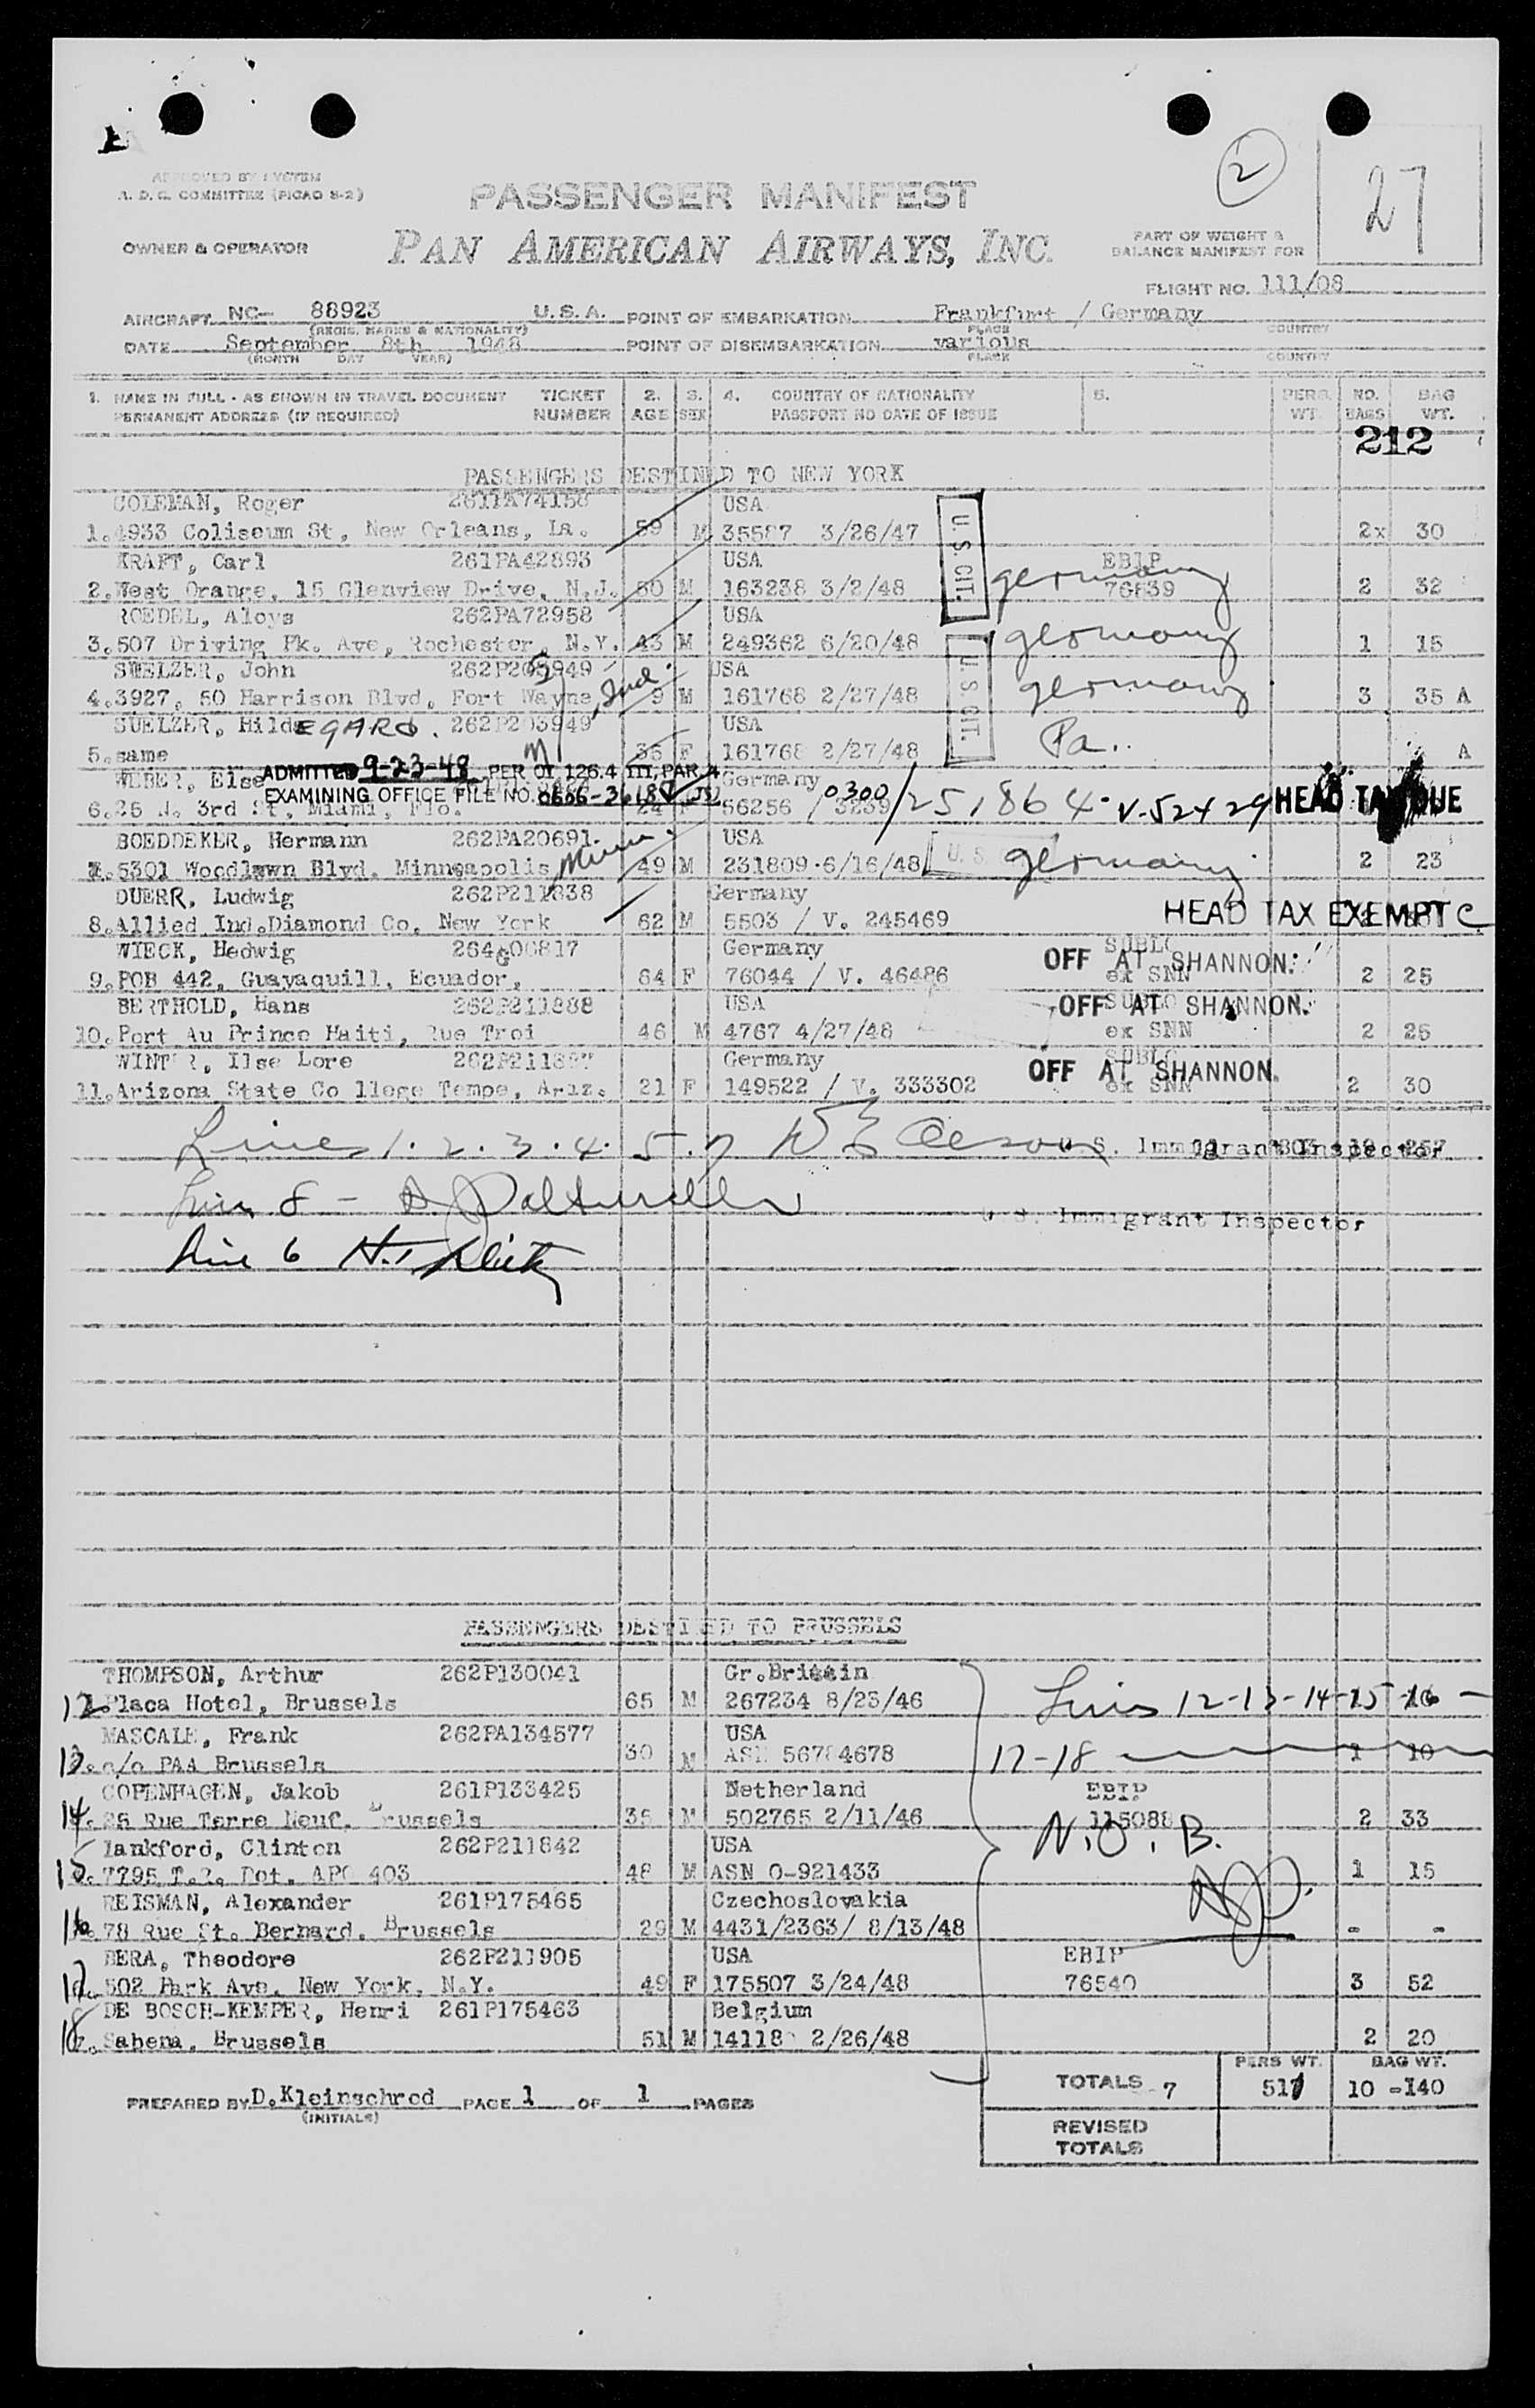 APPROVED BY SYSTEM
A. D. C. COMMITTEE (PICAO S-2)
2
27
PASSENGER MANIFEST
OWNER & OPERATOR
PAN AMERICAN AIRWAYS, INC.
PART OF WEIGHT &
BALANCE MANIFEST FOR
FLIGHT NO. 111/08
AIRCRAFT NC- 88923 U.S.A. POINT OF EMBARKATION Frankfurt / Germany
(REGIS. MARKS & NATIONALITY) PLACE COUNTRY
DATE September 8th 1948 POINT OF DISEMBARKATION various
(MONTH DAY YEAR) PLACE COUNTRY
1. NAME IN FULL - AS SHOWN IN TRAVEL DOCUMENT TICKET 2. 3. 4. COUNTRY OF NATIONALITY 5. PERS. NO. BAG
PERMANENT ADDRESS (IF REQUIRED) NUMBER AGE SEX PASSPORT NO DATE OF ISSUE WT. BAGS WT.
212
PASSENGERS DESTINED TO NEW YORK
COLEMAN, Roger 261PA74158 USA
1. 4933 Coliseum St, New Orleans, La. 59 M 35587 3/26/47 U.S. CIT. 2x 30
KRAFT, Carl 261PA42893 USA EBIP
2. West Orange, 15 Glenview Drive, N.J. 50 M 163238 3/2/48 germany 76539 2 32
ROEDEL, Aloys 262PA72958 USA
3. 507 Driving Pk. Ave, Rochester, N.Y. 43 M 249362 6/20/48 germany 1 15
SUELZER, John USA U.S. CIT.
4. 3927, 50 Harrison Blvd, Fort Wayne, Ind. 9 M 161768 2/27/48 germany 3 35 A
SUELZER, HildEGARD. 262P203949 USA
5. same 35 F 161768 2/27/48 Pa.. A
WEBER, Else ADMITTED 9-23-48 PER OI 126.4 m, PAR 4 Germany
EXAMINING OFFICE FILE NO. 0606-36187
6. 3rd St, Miami, Flo. 24 F 56256 / 3239 0300/251864. V-52429 HEAD TAX DUE
BOEDDEKER, Hermann 262PA20691 USA
7. 5301 Woodlawn Blvd. Minneapolis, Minn. 49 M 231809 6/16/48 U.S. germany 2 23
DUERR, Ludwig 262P211838 Germany
8. Allied Ind. Diamond Co. New York 62 M 5503 / V. 245469 HEAD TAX EXEMPT C
WIECK, Hedwig Germany SUBLO
9. POB 442, Guayaquill, Ecuador, 64 F 76044 / V. 46486 OFF AT SHANNON. ex SNN 2 25
BERTHOLD, Hans 262P211888 USA SUBLO
10. Port Au Prince Haiti, Rue Troi 46 M 4767 4/27/48 OFF AT SHANNON. ex SNN 2 25
WINTER, Ilse Lore Germany SUBLO
11. Arizona State Co llege Tempe, Ariz. 21 F 149522 / V. 333302 OFF AT SHANNON. ex SNN 2 30
Lines 1. 2. 3. 4. 5. 7 U.S. Immigrant Inspector
Line 8 - U.S. Immigrant Inspector
Line 6
PASSENGERS DESTINED TO BRUSSELS
THOMPSON, Arthur 262P130041 Gr.Britain
12. Placa Hotel, Brussels 65 M 267234 8/23/46 Lines 12-13-14-15-16-
MASCALE, Frank 262PA134577 USA
13. c/o PAA Brussels 30 M ASN 56784678 17-18 1 10
COPENHAGEN, Jakob 261P133425 Netherland EBIP
14. 25 Rue Terre Neuf. Brussels 35 M 502765 2/11/46 115088 2 33
N.O.B.
Lankford, Clinton 262P211842 USA
15. 7795 T.I. Det. APO 403 48 M ASN O-921433 1 15
REISMAN, Alexander 261P175465 Czechoslovakia
16. 78 Rue St. Bernard. Brussels 29 M 4431/2363/ 8/13/48 - -
BERA, Theodore 262P211905 USA EBIP
17. 502 Park Ave. New York, N.Y. 49 F 175507 3/24/48 76540 3 52
DE BOSCH-KEMPER, Henri 261P175463 Belgium
18. Sabena, Brussels 51 M 14118 2/26/48 2 20
PERS WT. BAG WT.
TOTALS 7 511 10 -140
PREPARED BY D.Kleinschrod PAGE 1 OF 1 PAGES
(INITIALS)
REVISED
TOTALS